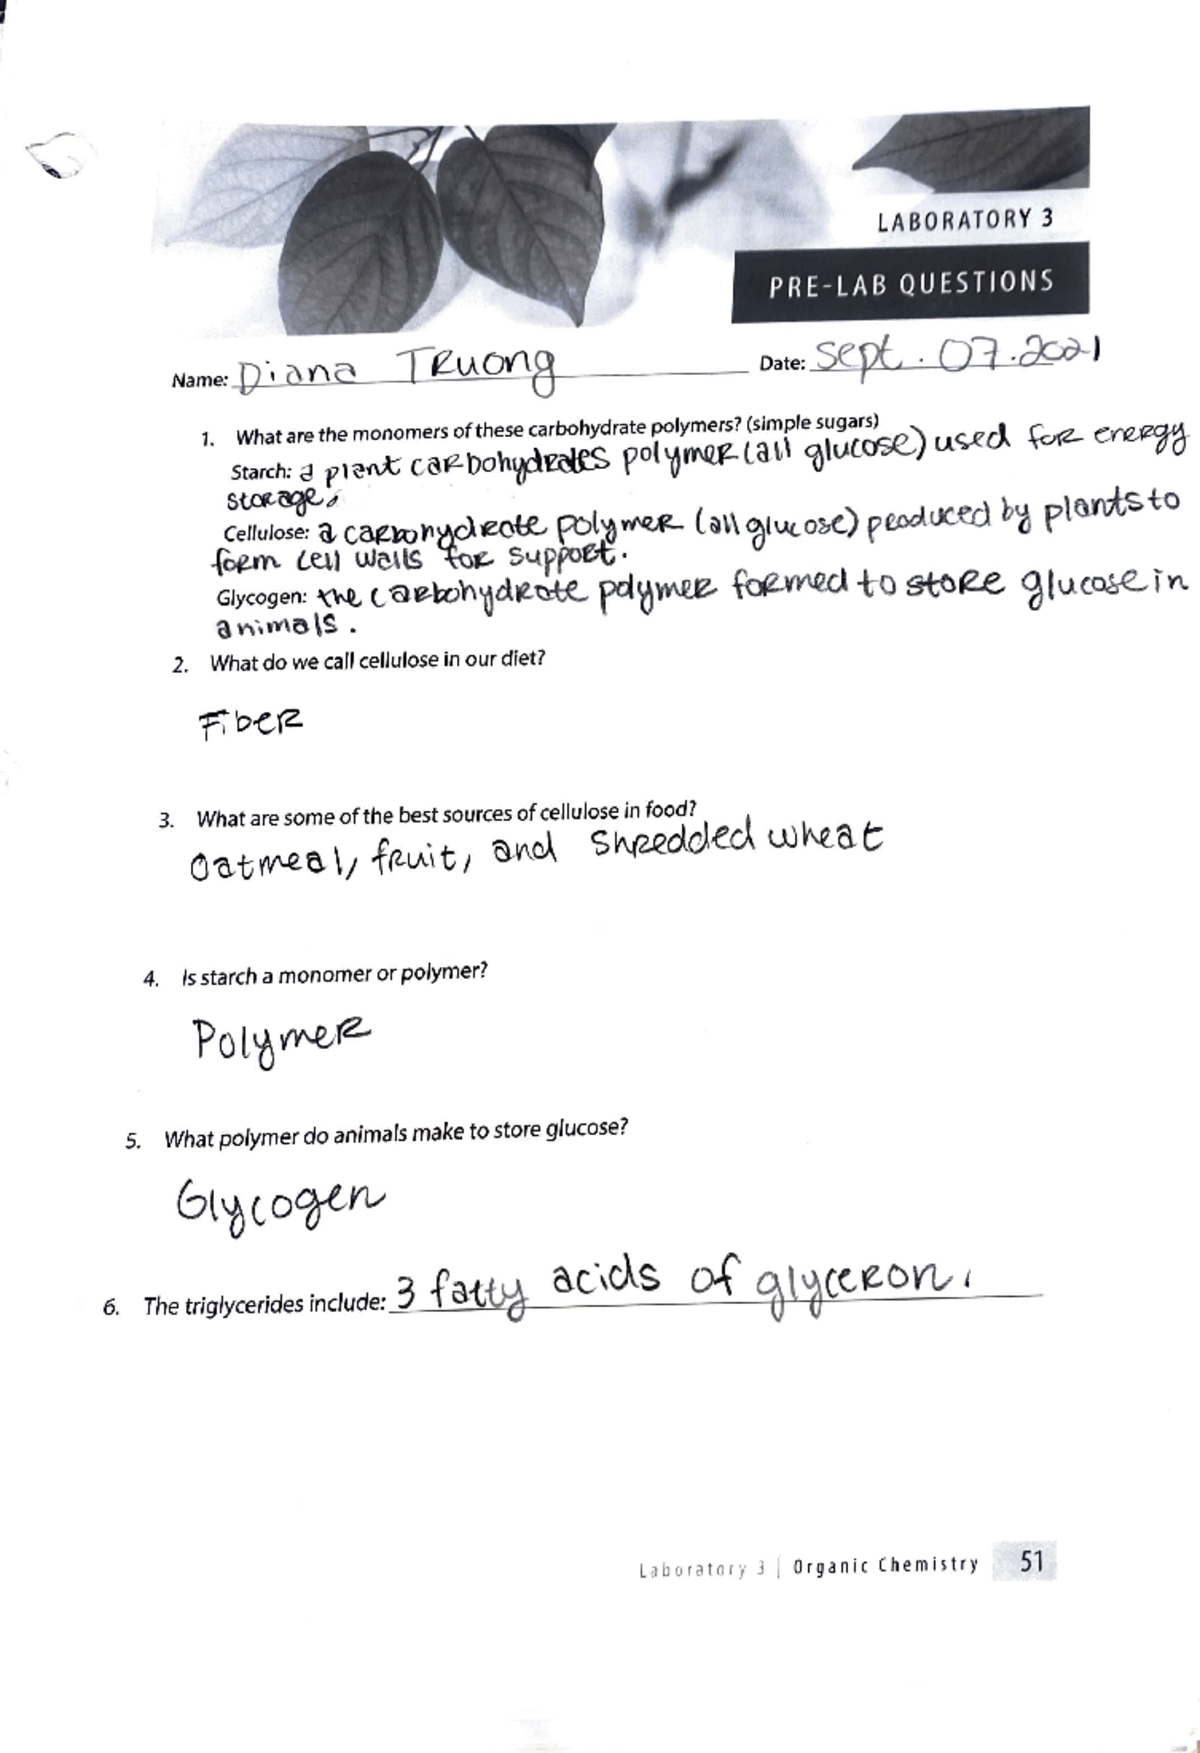 LABORATORY 3
PRE-LAB QUESTIONS
Name: Diana Truong Date: Sept. 07.2021
1. What are the monomers of these carbohydrate polymers? (simple sugars)
Starch: a plant carbohydrates polymer (all glucose) used for energy
storage.
Cellulose: a carbohydrate polymer (all glucose) produced by plants to
form cell walls for support.
Glycogen: the carbohydrate polymer formed to store glucose in
animals.
2. What do we call cellulose in our diet?
Fiber
3. What are some of the best sources of cellulose in food?
Oatmeal, fruit, and shredded wheat
4. Is starch a monomer or polymer?
Polymer
5. What polymer do animals make to store glucose?
Glycogen
6. The triglycerides include: 3 fatty acids of glyceron.
Laboratory 3 | Organic Chemistry 51